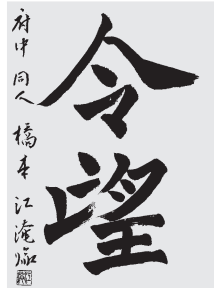 令望
府中 同人 橋本 江滝